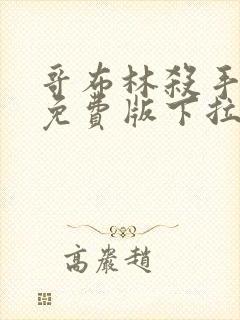 哥布林殺手
免費版下拉
高嚴趙